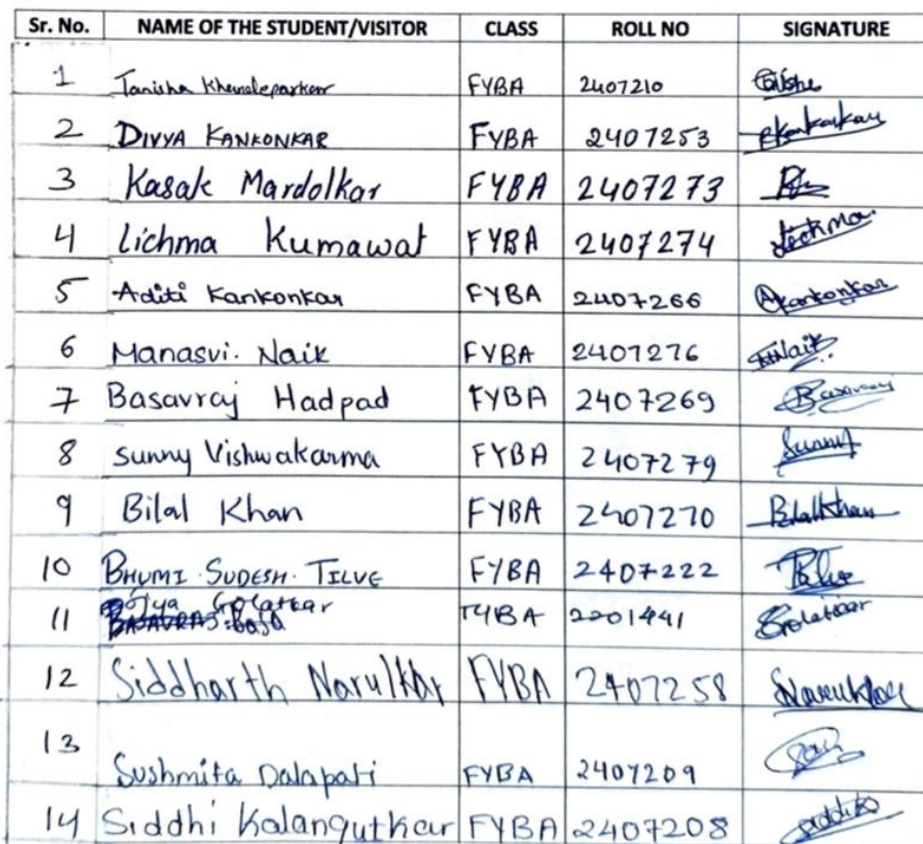 Sr. No. NAME OF THE STUDENT/VISITOR CLASS ROLL NO SIGNATURE
1 Tanisha FYBA 2407210
2 DIVYA KANKONKAR FYBA 2407253
3 Kasak Mardolkar FYBA 2407273
4 Lichma Kumawat FYBA 2407274 Lichma.
5 Aditi Kankonkar FYBA 2407266 AKankonkar
6 Manasvi. Naik FYBA 2407276 MNaik
7 Basavraj Hadpad FYBA 2407269 Basavraj
8 Sunny Vishwakarma FYBA 2407279 Sunny
9 Bilal Khan FYBA 2407270 BilalKhan
10 BHUMI SUDESH TILVE FYBA 2407222
11 Golatkar TYBA 2201441 Golatkar
12 Siddharth Narulkar FYBA 2407258
13 Sushmita Dalapati FYBA 2407209
14 Siddhi Kalangutkar FYBA 2407208